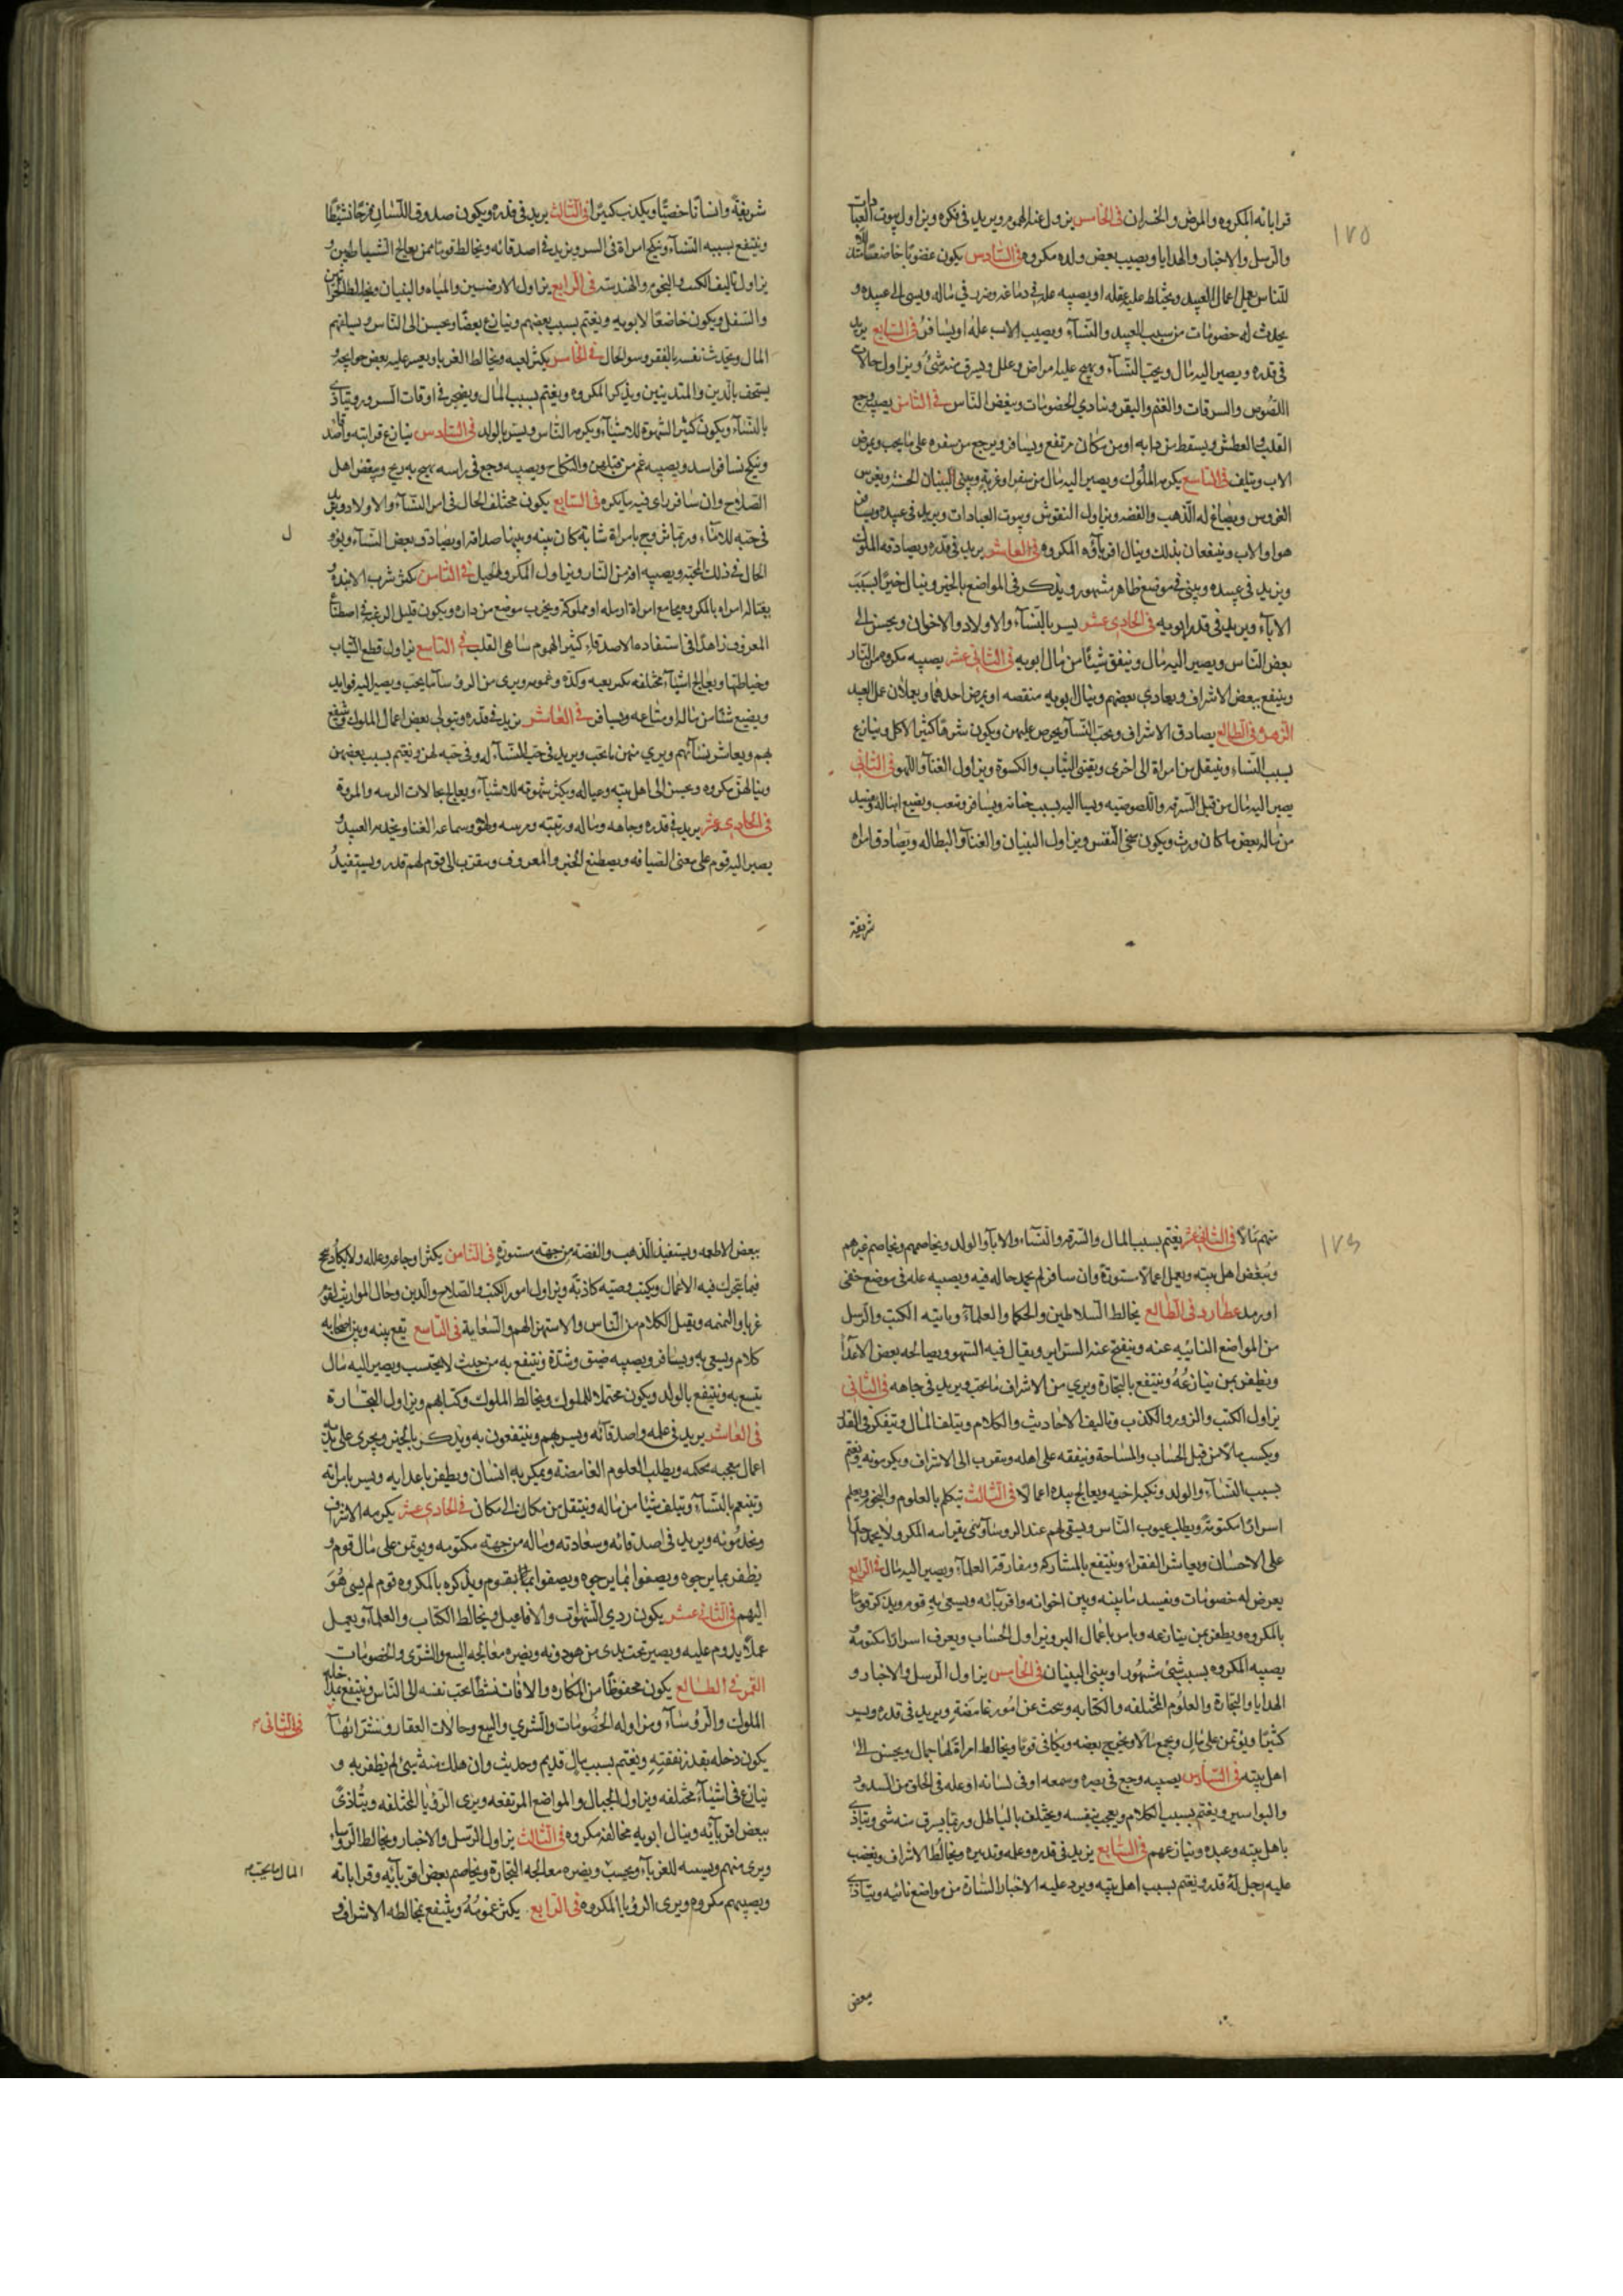 ١٧٥
قراباته المكروه والمرض والخسران في الخامس يزول عنه الهموم ويزيد في فكره ويزاول بيوت العبادات
والرسل والاخبار والهدايا ويصيب بعض ولده مكروه في السادس يكون غضوبا خاضعا
للناس يعمل اعمال العبيد ويختلط على عقله او يصيبه علة في دماغه وضرب في ماله ويسئ الى عبيده و
يحدث له خصومات من سبب العبيد والنسآء ويصيب الاب علة او يسافر في السابع يزيد
في قدره ويصير اليه مال ويحب النسآء ويهيج عليه امراض وعلل ويسرق منه شئ ويزاول حالات
اللصوص والسرقات والغنم والبقر وينادي الخصومات ويبغض الناس في الثامن يصيبه وجع
القلب والعطش ويسقط من دابه او من مكان مرتفع ويسافر ويرجع من سفره على ما يحب ويمرض
الاب ويتلف في التاسع يكرمه الملوك ويصير اليه مال من سفر او غربة ويبنى البنيان الحسنه ويغرس
الغروس ويصاغ له الذهب والفضه ويزاول النقوش وبيوت العبادات ويزيد في عبيده ويسافر
هو او الاب وينتفعان بذلك وينال اقربآؤه المكروه في العاشر يزيد في قدره ويصادقه الملوك
ويزيد في عبيده ويبنى في موضع ظاهر مشهور ويذكر في المواضع بالخير وينال خيرا بسبب
الابآء ويزيد في قدر ابويه في الحادى عشر يسر بالنسآء والاولاد والاخوان ويحسن الى
بعض الناس ويصير اليه مال وينفق شيئا من مال ابويه في الثانى عشر يصيبه مكروه من النار
وينتفع ببعض الاشراف ويعادى بعضهم وينال ابويه منقصه او يمرض احدهما ويعملان عمل العبيد
الزهرة في الطالع يصادق الاشراف ويحب النسآء ويحرص عليهن ويكون شرها كثير الاكل وينازع
بسبب النساء وينتقل من امراة الى اخرى ويقتنى الثياب والكسوة ويزاول الغنآء واللهو في الثانى
يصير اليه مال من قبل السرقه واللصوصيه ويسآ اليه بسبب خيانة ويسافر ويتعب ويضيع ماله ويفيد
من ماله بعض ما كان ورث ويكون سخى النفس ويزاول البنيان والغنآء والبطاله ويصادق امراة
شريفة
شريفة وانسانا خصيا ويكذب كثيرا في الثالث يزيد في قدره ويكون صدوق اللسان مزحا نشيطا
وينتفع بسببه النسآء وينكح امراة في السر ويزيد في اصدقائه ويخالط قوما ممن يعالج الشياطين و
يزاول تاليف الكتب والنجوم والهندسة في الرابع يزاول الارضيين والمياه والبنيان ويخالط
والسفل ويكون خاضعا لابويه ويغتم بسبب بعضهم وينازع بعضا ويحسن الى الناس
المال ويحدث نفسه بالفقر وسو الحال في الخامس يكثر لعبه ويخالط الغربا ويعسر عليه بعض حوايجه و
يستخف بالدين والمتدينين ويذكر المكروه ويغتم بسبب المال ويضجر في اوقات السرور ويتاذى
بالنسآء ويكون كثير الشهوة للاشيآء ويكرمه الناس ويسر بالولد في السادس ينازع قرابته
وينكح نسا فواسد ويصيبه غم من قبلهن والنكاح ويصيبه وجع في راسه يهيج به ريح ويبغض اهل
الصلاح وان سافر راى فيه ما يكره في السابع يكون مختلف الحال في امر النسآء والاولاد ويزيد
في حبه للامآء وربما تزوج بامراة شابة كان بينه وبينها صداقه او يصادق بعض النسآء
الحال في ذلك المحبة ويصيبه افة من النار ويزاول المكر والحيل في الثامن يكثر شرب الانبذه و
يغتاله امراه بالمكر ويجامع امراة ارمله او مملوكة ويخرب موضع من داره ويكون قليل الرغبة في اصطناع
المعروف زاهدا في استفادة الاصدقاء كثير الهموم ساهى القلب في التاسع يزاول قطع الثياب
وخياطتها ويعالج اشيآء مختلفه وكذه وغمومه ويرى من الروسآ ما يحب ويصير اليه فوايد
ويضيع شئا من ماله او متاعه ويسافر في العاشر يزيد في قدره ويتولى بعض اعمال الملوك وينتفع
بهم ويعاشر نسآئهم ويرى منهن ما يحب ويزيد في حب النسآء له وفى حبه لهن ويغتم بسبب بعضهن
وينالهن مكروه ويحسن الى اهل بيته وعياله ويكثر شهوته للاشيآء ويعالج حالات الرسه والمروة
في الحادى عشر يزيد في قدره وجاهه وماله ورتبته ولهوه وسماعه الغنا ويخدمه العبيد و
يصير اليه قوم على معنى الضيافه ويصطنع الخير والمعروف ويتقرب الى قوم لهم قدر ويستفيد
ل
١٧٦
منهم مالا في الثانى عشر يغتم بسبب المال والسرقه والنسآء والابآء والولد ويخاصمهم ويخاصم غيرهم
ويبغض اهل بيته ويعمل اعمالا مستورة وان سافر لم يحمد حاله فيه ويصيبه علة في موضع خفى
او رمد عطارد في الطالع يخالط السلاطين والحكما والعلمآء وياتيه الكتب والرسل
من المواضع النائيه عنه وينفتح عنه السراير ويقال فيه السهو ويصالحه بعض الاعدآء
ويظفر بمن ينازعه وينتفع بالتجارة ويرى من الاشراف ما يحب ويزيد في جاهه في الثانى
يزاول الكتب والزور والكذب وتاليف الاحاديث والكلام ويتلف المال ويتفكر في
ويكسب مالا من قبل الحساب والمساحة وينفقه على اهله ويتقرب الى الاشراف ويكرمونه ويغتم
بسبب النسآء والولد ويعالج بيده اعمالا في الثالث يتكلم بالعلوم والنجوم ويعلم
اسرارا مكتومة ويطلب عيوب الناس ويسعى بهم عند الروسآء
على الاحسان ويعاشر الفقراء وينتفع بالمشاركه ومفارقة العلمآء ويصير اليه مال في الرابع
يعرض له خصومات ويفسد ما بينه وبين اخوانه واقربآئه ويسعى به قوم ويذكر قوما
بالمكروه ويظفر بمن ينازعه ويامر باعمال البر ويزاول الحساب ويعرف اسرارا مكتومة
يصيبه المكروه بسبب شئ مشهور او يبنى البنيان في الخامس يزاول الرسل والاخبار و
الهدايا والتجارة والعلوم المختلفه والكتابه ويبحث عن امور غامضة ويزيد في قدره
كثيرا ويؤتمن على مال ويجمع مالا ويخرج بعضه ويكافى قوما ويخالط امراة لها جمال ويحسن الى
اهل بيته في السادس يصيبه وجع في بصره وسمعه او في لسانه او علة في الحلق من السدود
والبواسير ويغتم بسبب الكلام ويعجب بنفسه ويختلف بالباطل وربما يسرق منه شى ويتاذى
باهل بيته وعبيده وينازعهم في السابع يزيد في قدره وعلمه وتدبيره ويخالط الاشراف ويغضب
عليه رجل له قدر ويغتم بسبب اهل بيته ويرد عليه الاخبار السارة من مواضع نائيه ويتاذى
ببعض
ببعض الاطعمه ويستفيد الذهب والفضة من جهة مستورة في الثامن يكثر اوجاعه وعلله ولا يكاد ينجح
فيما يتحرك فيه الاعمال ويكتب وصيه كاذبه ويزاول امور الكتب والصلاح والدين وحال المواريث لقوم
غربا والنميمه ويقبل الكلام من الناس والاستهزا لهم والسعاية في التاسع يقع بينه وبين اصحابه
كلام ويسعى به ويسافر ويصيبه ضيق وشدة وينتفع به من حيث لا يحتسب ويصير اليه مال
يتسع به وينتفع بالولد ويكون محتملا للملوك ويخالط الملوك وكتابهم ويزاول التجارة
في العاشر يزيد في علمه واصدقآئه ويسر بهم وينتفعون به ويذكر بالخير ويجرى على يديه
اعمال عجيبه محكمه ويطلب العلوم الغامضة ويمكر به انسان ويظفر باعدايه ويسر بامراته
ويتنعم بالنسآء ويتلف شيئا من ماله وينتقل من مكان الى مكان في الحادى عشر يكرمه الاشراف
ويخدمونه ويزيد في اصدقائه وسعادته وماله من جهة مكتومه ويؤتمن على مال قوم و
يظفر بما يرجوه ويصفوا بما يرجوه ويذكره بالمكروه قوم لم يسئ هو
اليهم في الثانى عشر يكون ردى الشهوات والافاعيل ويخالط الكتاب والعلمآء ويعمل
عملا يدوم عليه ويصير تحت يدى من هو دونه ويضره معالجه البيع والشرى والخصومات
القمر في الطالع يكون محفوظا من المكاره والافات نشطا يحب نفسه الى الناس وينتفع بمداخله
الملوك والروسآء ومزاوله الخصومات والشرى والبيع وحالات العقار
في الثانى
يكون دخله بقدر نفقته ويغتم بسبب مال قديم وحديث وان هلك منه شئ لم يظفر به و
ينازع في اشيآء مختلفه ويزاول الجبال والمواضع المرتفعه ويرى الرؤيا المختلفه ويتاذى
ببعض اقربآئه وينال ابويه مخالفة مكروه في الثالث يزاول الرسل والاخبار ويخالط الروسا
ويرى منهم ويضره معالجه التجارة ويخاصم بعض اقربآئه وقراباته
المال ما يحب
ويصيبهم مكروه ويرى الرؤيا المكروه في الرابع يكثر غمومه وينتفع بمخالطه الاشراف و